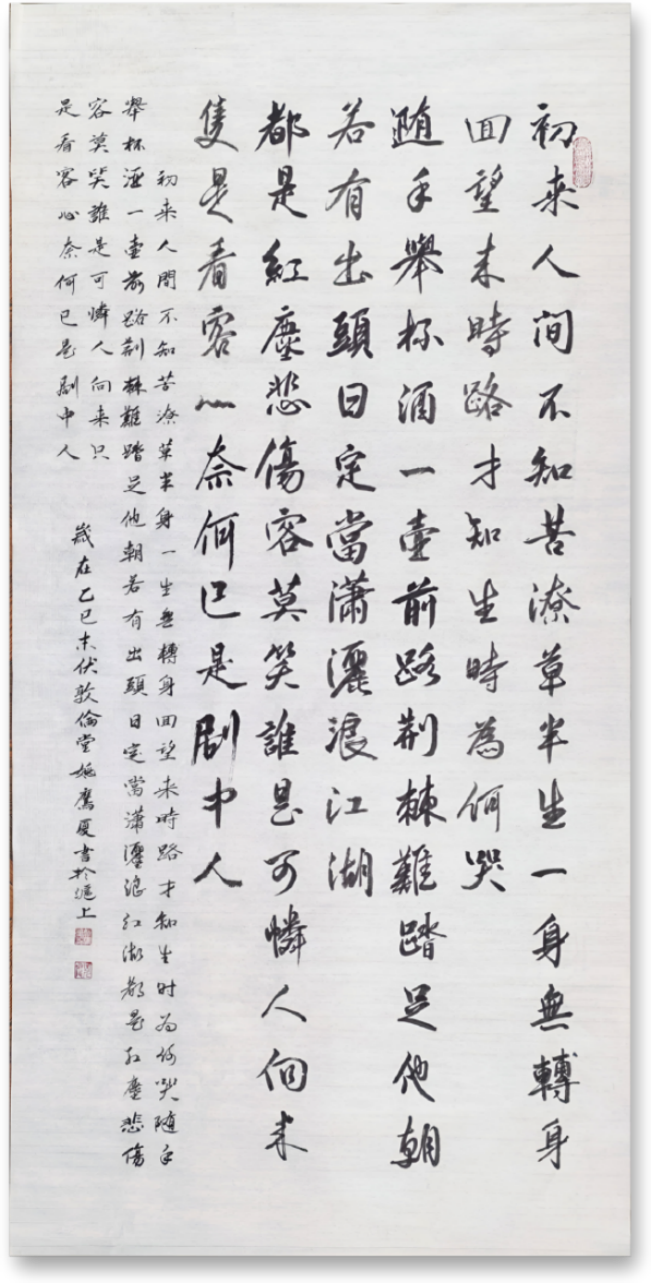 初来人间不知苦潦草半生一身無轉身
回望来時路才知生時為何哭
随手舉杯酒一壶前路荆棘難踏足他朝
若有出頭日定當瀟灑浪江湖
都是紅塵悲傷容莫笑誰是可憐人向来
隻是看客心奈何已是剧中人
初来人間不知苦潦草半身一生無轉身回望来時路才知生时为何哭随手
舉杯酒一壶前路荆棘難踏足他朝若有出頭日定當瀟灑浪江湖都是紅塵悲傷
容莫笑誰是可憐人向来只
是看客心奈何已是剧中人
歲在乙巳末伏敦倫堂施鷹廈書於滬上